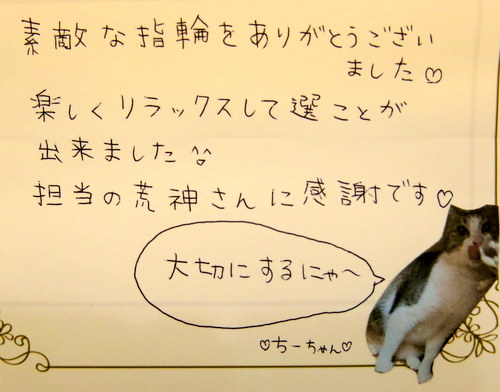 素敵な指輪をありがとうござい
ました♡
楽しくリラックスして選ことが
出来ました
担当の荒神さんに感謝です♡
大切にするにゃ〜
♡ちーちゃん♡